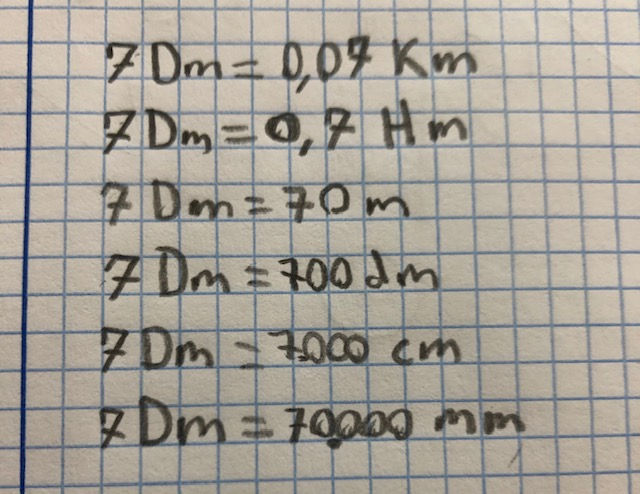 7 Dm = 0,07 Km
7 Dm = 0,7 Hm
7 Dm = 70 m
7 Dm = 700 dm
7 Dm = 7.000 cm
7 Dm = 70.000 mm